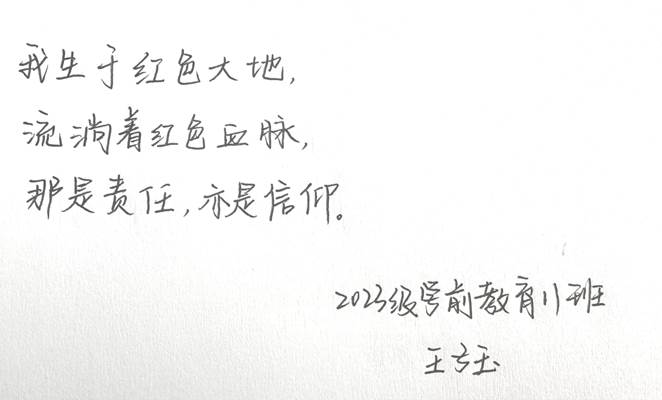 我生于红色大地,
流淌着红色血脉,
那是责任,亦是信仰。
2023级学前教育11班
王 玉